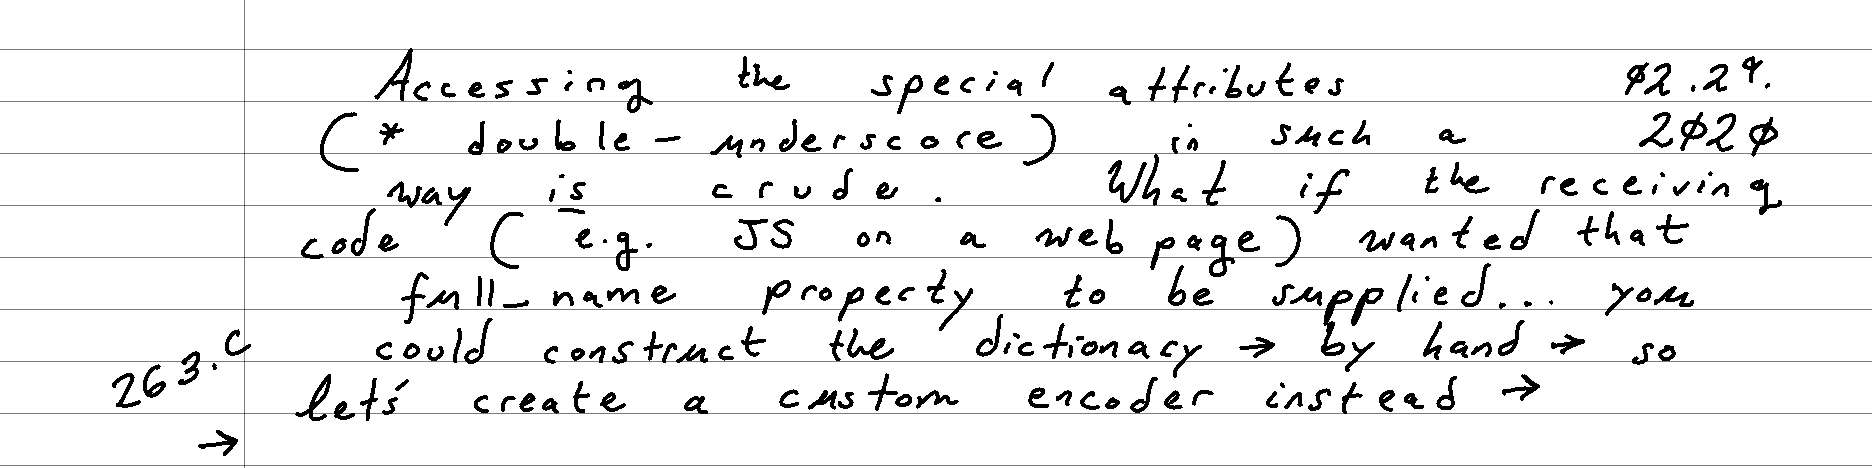 Accessing the special attributes 02.29.
(* double-underscore) in such a 2020
way is crude. What if the receiving
code (e.g. JS on a web page) wanted that
full_name property to be supplied... you
could construct the dictionary → by hand → so
263.c
let's create a custom encoder instead →
→